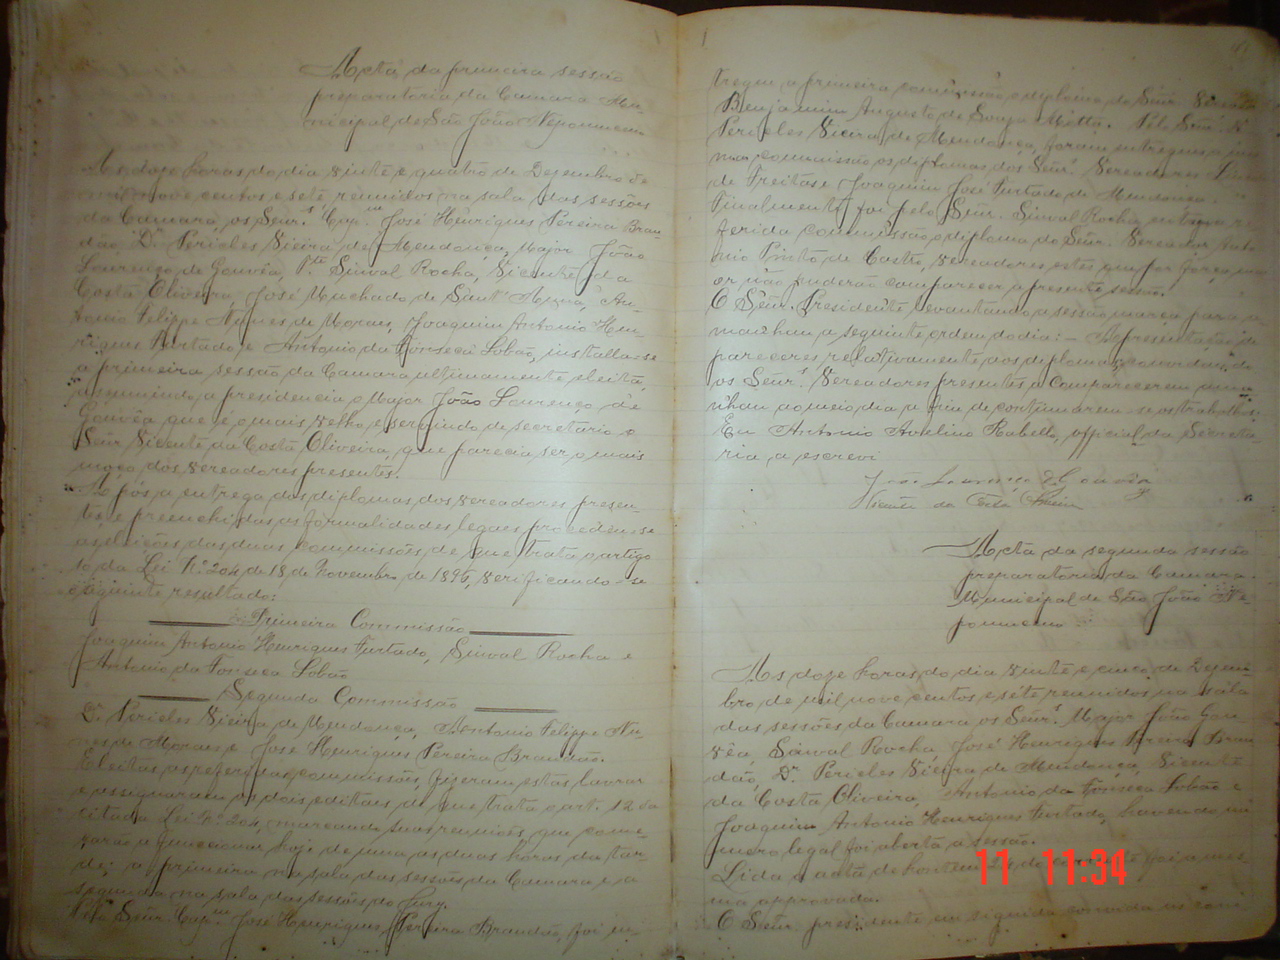 Acta da primeira sessão
preparatoria da Camara Mu-
nicipal de São João Nepomuceno
As doze horas do dia vinte e quatro de Dezembro de
mil nove centos e sete reunidos na sala das sessões
da Camara, os Senr.s Cap.m José Henriques Pereira Bran-
dão, Dr. Pericles Vieira de Mendonça, Major João
Lourenço de Gouvêa, Sinval Rocha, Vicente da
Costa Oliveira, José Machado de Sant' Anna, An-
tonio Felippe Nunes de Moraes, Joaquim Antonio Hen-
riques Furtado, e Antonio da Fonseca Lobão, installa-se
a primeira sessão da Camara ultimamente eleita,
assumindo a presidencia o Major João Lourenço de
Gouvêa que é o mais velho e servindo de secretario o
Senr Vicente da Costa Oliveira, que parecia ser o mais
moço dos vereadores presentes.
Após a entrega dos diplomas dos vereadores presen-
tes e preenchidas as formalidades legaes procedeu-se
as eleições das duas commissões de que trata o artigo
10 da Lei N.º 204 de 18 de Novembro de 1896, verificando-se
o seguinte resultado:
Primeira Commissão
Joaquim Antonio Henriques Furtado, Sinval Rocha e
Antonio da Fonseca Lobão
Segunda Commissão
Dr. Pericles Vieira de Mendonça, Antonio Felippe Nu-
nes de Moraes e José Henriques Pereira Brandão.
Eleitas as referidas commissões, fizeram estas lavrar
e assignaram os dois editaes de que trata o art. 12 da
citada Lei N.º 204, marcando suas reuniões, que come-
çarão a funccionar hoje de uma as duas horas da tar-
de; a primeira na sala das sessões da Camara e a
segunda na sala das sessões do Jury.
Pelo Senr. Cap.m José Henriques Pereira Brandão, foi en-
tregue a primeira commissão o diploma do Senr. Vereador
Benjamim Augusto de Souza Motta. Pelo Senr. Dr.
Pericles Vieira de Mendonça, foram entregues a
mesma commissão os diplomas dos Senr.s Vereadores
de Freitas e Joaquim José Furtado de Mendonça.
Finalmente, foi pelo Senr. Sinval Rocha, entregue re-
ferida commissão o diploma do Senr. Vereador Anto-
nio Pinto de Castro, vereadores estes que por força mai-
or, não puderão comparecer a presente sessão.
O Senr. Presidente, levantando a sessão marca para a-
manham a seguinte ordem do dia: — Apresentação de
pareceres, relativamente aos diplomas, convidando
os Senr.s Vereadores presentes a comparecerem ama-
nham ao meio dia a fim de continuarem-se os trabalhos.
Eu Antonio Avelino Rabello, official da Secreta-
ria a escrevi
João Lourenço de Gouvêa
Vicente da Costa Oliveira
Acta da segunda sessão
preparatoria da Camara
Municipal de São João Ne-
pomuceno
As doze horas do dia vinte e cinco de Dezem-
bro de mil nove centos e sete reunidos na sala
das sessões da Camara os Senr.s Major João Gou-
vêa, Sinval Rocha, José Henriques Pereira Bran-
dão, Dr. Pericles Vieira de Mendonça, Vicente
da Costa Oliveira, Antonio da Fonseca Lobão e
Joaquim Antonio Henriques Furtado, havendo nu-
mero legal foi aberta a sessão.
Lida a acta de hontem foi a mes-
ma approvada.
O Senr. presidente em seguida convida as com-
11 11:34